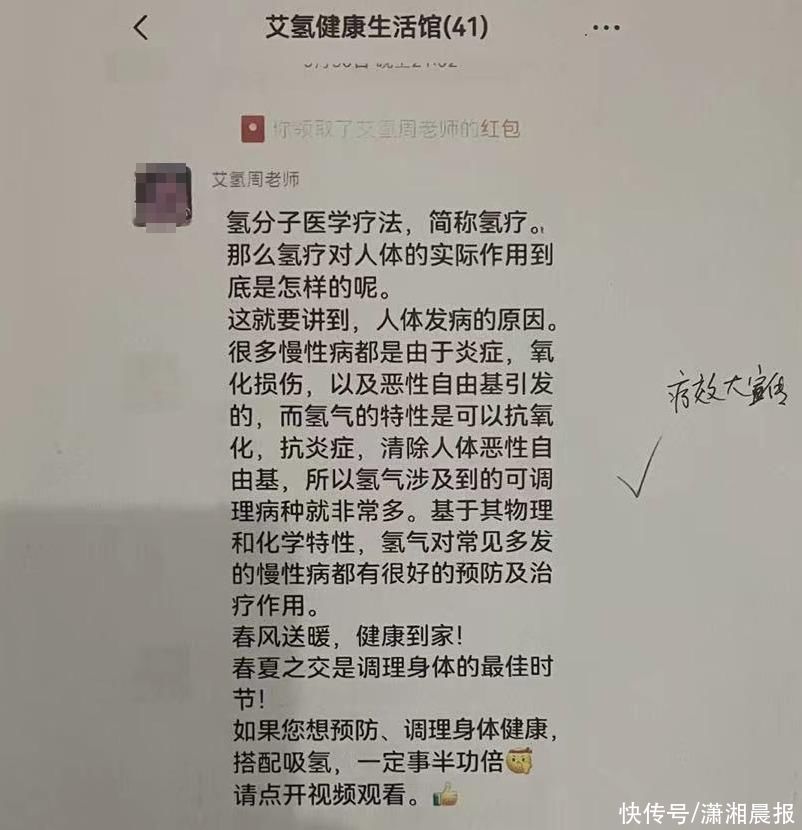 艾氢健康生活馆(41)
你领取了艾氢周老师的红包
艾氢周老师
氢分子医学疗法，简称氢疗。
那么氢疗对人体的实际作用到
底是怎样的呢。
这就要讲到，人体发病的原因。
很多慢性病都是由于炎症，氧
化损伤，以及恶性自由基引发
的，而氢气的特性是可以抗氧
化，抗炎症，清除人体恶性自
由基，所以氢气涉及到的可调
理病种就非常多。基于其物理
和化学特性，氢气对常见多发
的慢性病都有很好的预防及治
疗作用。
春风送暖，健康到家！
春夏之交是调理身体的最佳时
节！
如果您想预防、调理身体健康，
搭配吸氢，一定事半功倍
请点开视频观看。
疗效大宣传
快传号/潇湘晨报